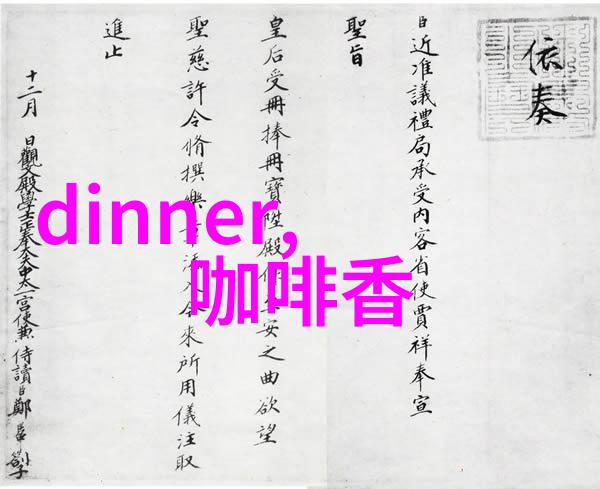 依奏
臣近准議禮局承受內容省使賈祥奉宣
聖旨
皇后受冊捧冊寶陞殿安之曲欲望
聖慈許令脩撰樂入今來所用儀注取
進止
十二月 日觀文殿學士正奉大夫中太一宮使兼侍讀臣鄭居中劄子
dinner,
咖啡香